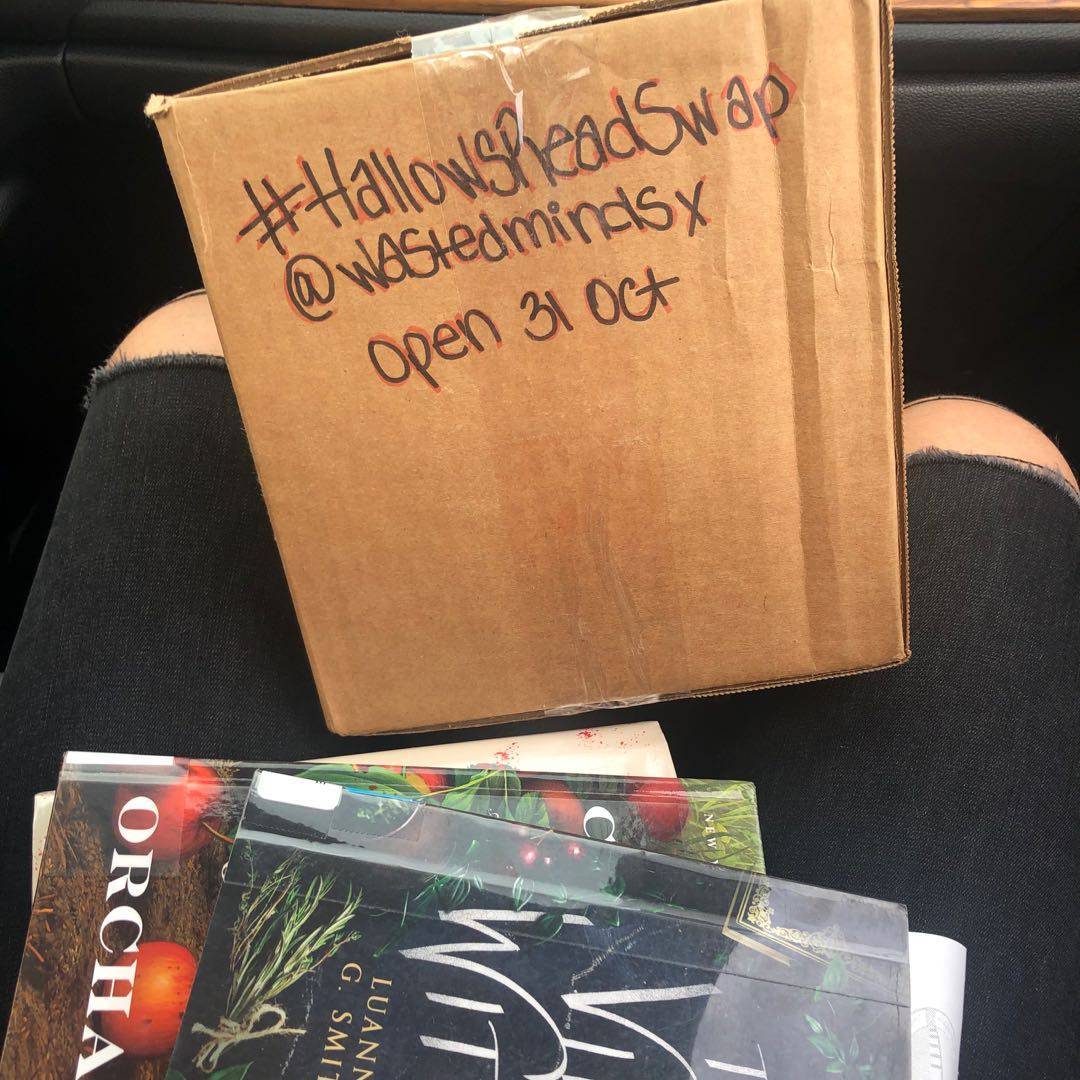 #HallowsReadSwap
@wastedmindsx
open 31 oct
ORCHA
NEW
LUANN
G. SMIT
WIT